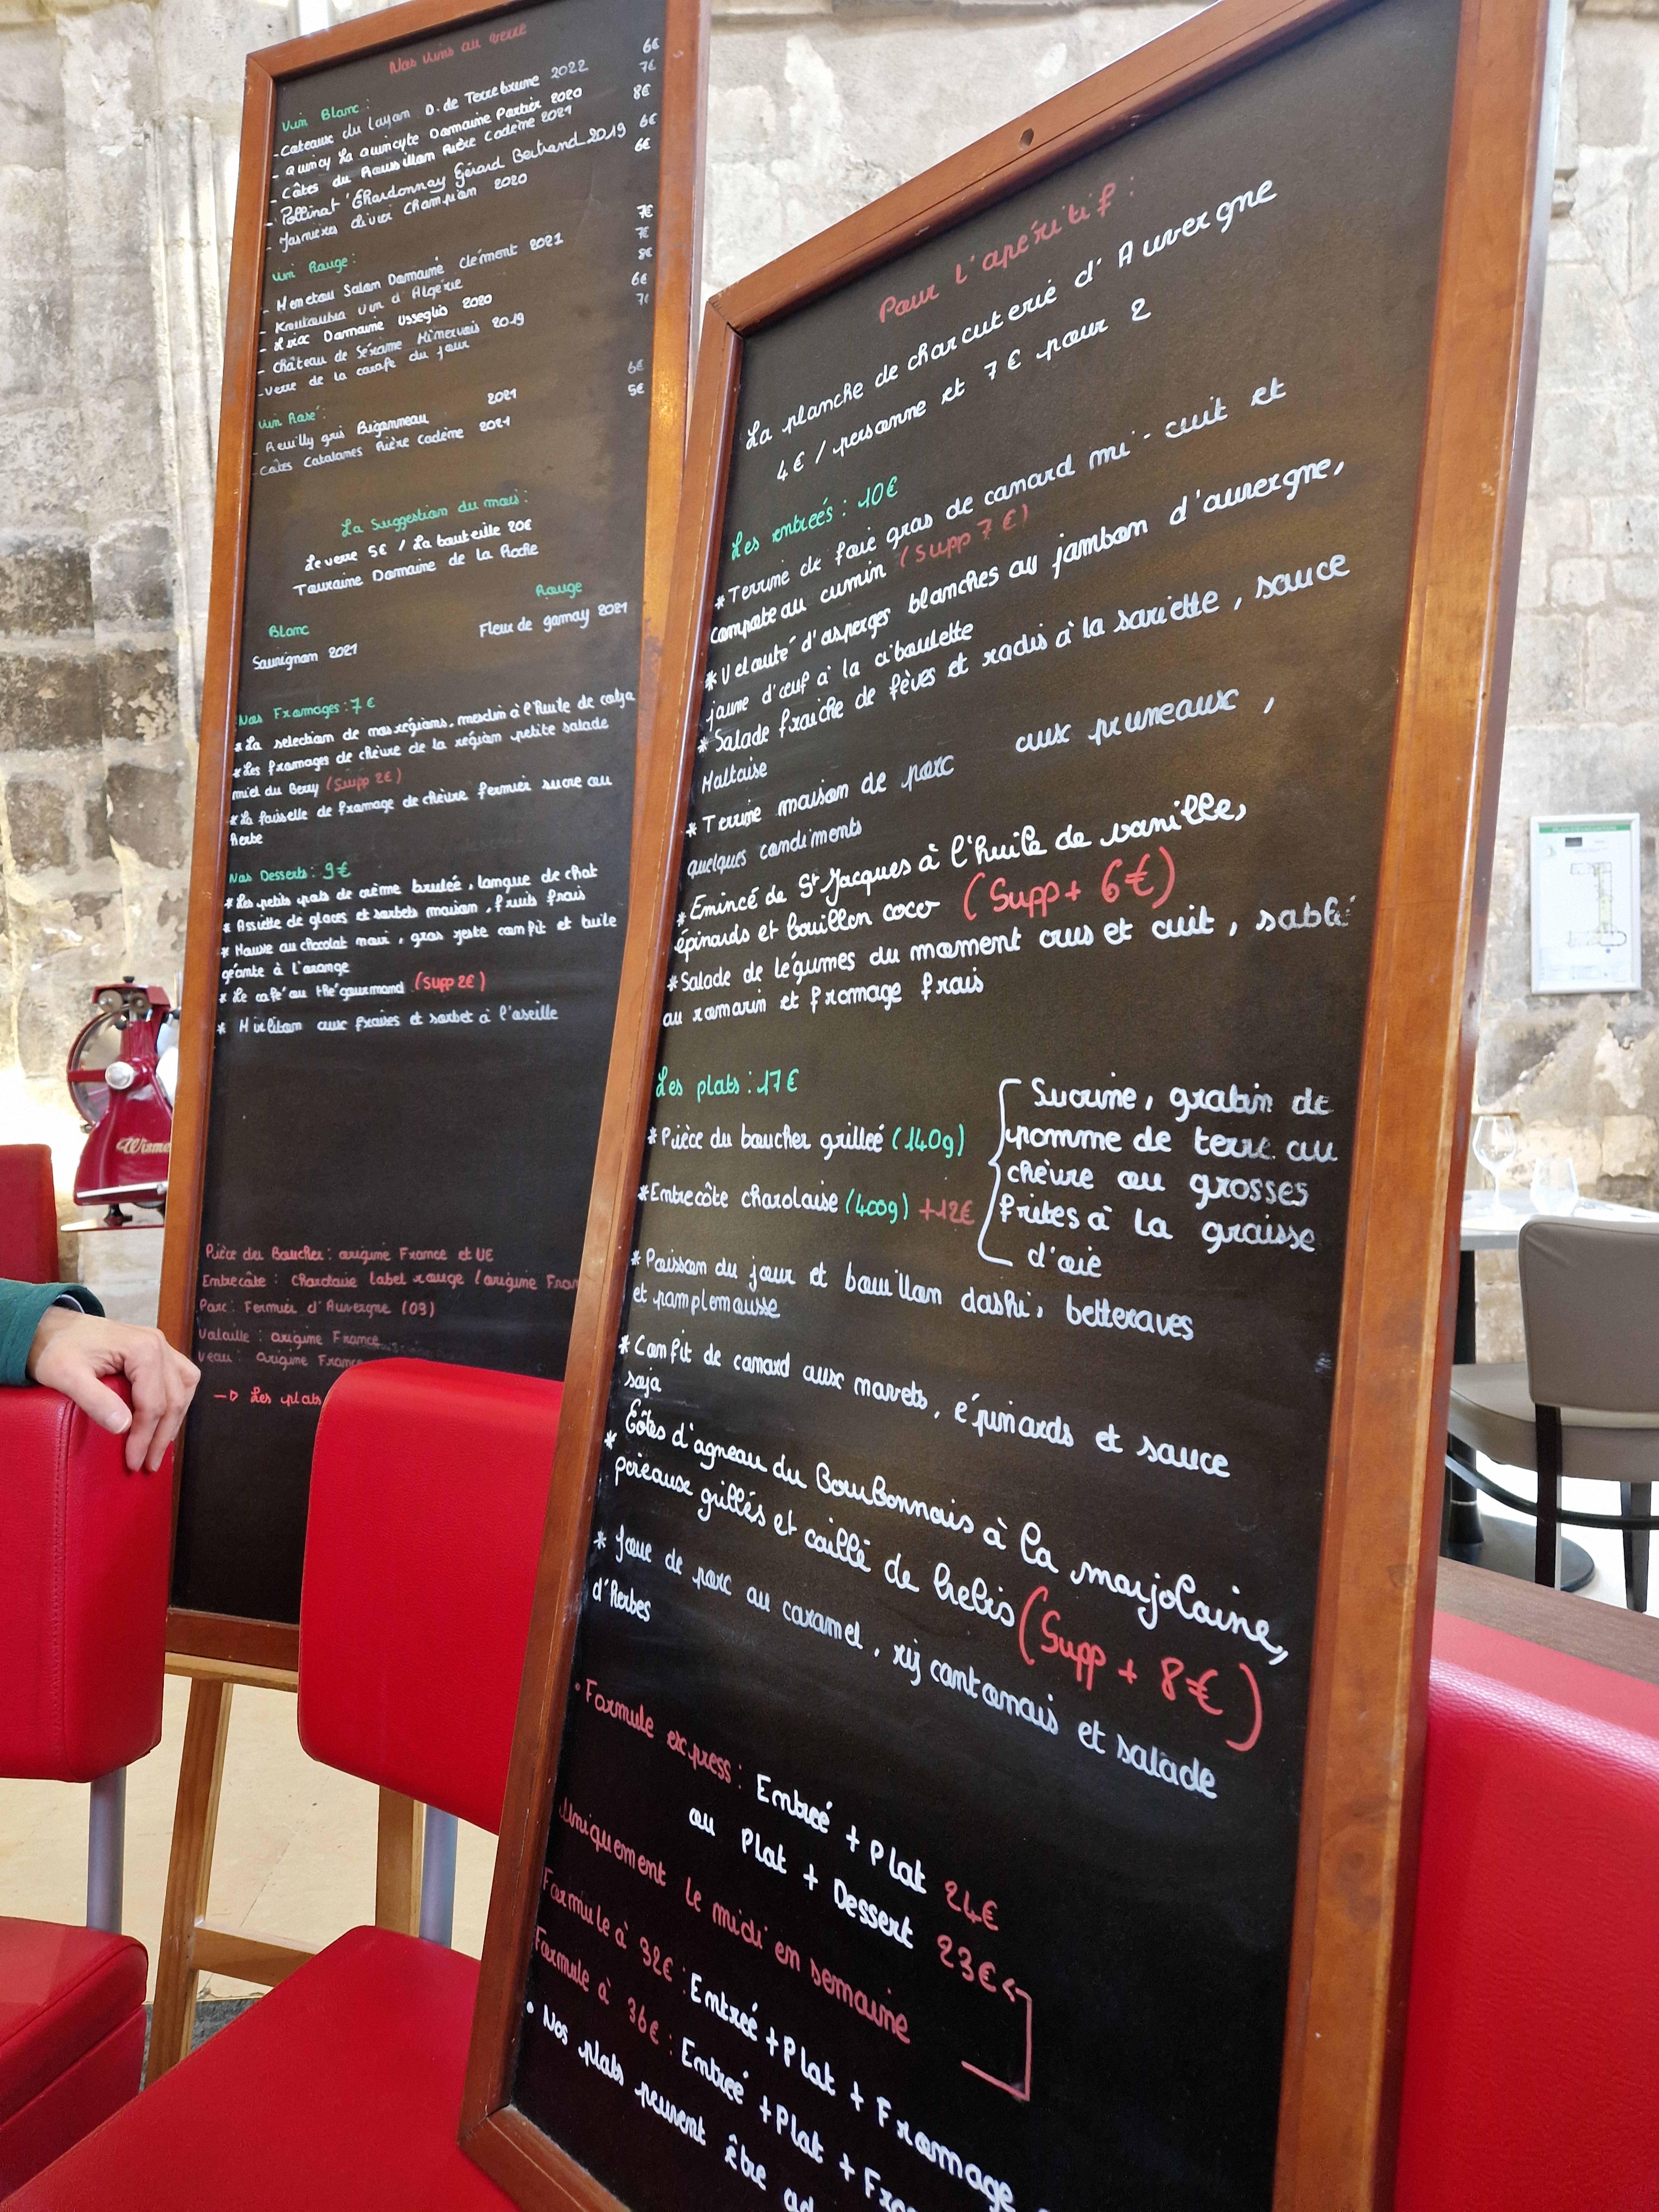 Nos vins au verre
Vin Blanc :
- Coteaux du layon D. de Terrebrune 2022 6€
- Quincy La quincyte Domaine Portier 2020 7€
- Côtes du Roussillon Puère Cadène 2021 8€
- Pollinat° Chardonnay Gérard Bertrand 2019 6€
- Jasnières Olivier Champion 2020 6€
Vin Rouge :
- Menetou Salon Domaine Clément 2021 7€
- Koutoubia Vin d'Algérie 7€
- Lirac Domaine Usseglio 2020 8€
- Château de Sérame Minervois 2019 6€
- Verre de la carafe du jour
Vin Rosé :
- Reuilly gris Bigonneau 2021 6€
- Côtes Catalanes Puère Cadène 2021 5€
La Suggestion du mois :
Le verre 5€ / La bouteille 20€
Touraine Domaine de la Roche
Blanc Rouge
Sauvignon 2021 Fleur de gamay 2021
Nos Fromages : 7€
*La selection de nos régions, mesclun à l'huile de colza
*Les fromages de chèvre de la région petite salade
miel du Berry (Supp 2€)
*La faisselle de fromage de chèvre fermier sucre ou
herbe
Nos Desserts : 9€
*Les petits pots de crème brulée, langue de chat
* Assiette de glaces et sorbets maison, fruits frais
* Mousse au chocolat noir, gros zeste confit et tuile
géante à l'orange
* Le café ou thé gourmand (Supp 2€)
* Mirliton aux fraises et sorbet à l'oseille
Pièce du Boucher : origine France et UE
Entrecôte : charolaise label rouge (origine Fran
Porc : Fermier d'Auvergne (03)
Volaille : origine France
Veau : origine France
→ Les plats
Pour l'apéritif :
La planche de charcuterie d'Auvergne
4€ / personne et 7€ pour 2
Les entreés : 10€
*Terrine de foie gras de canard mi-cuit et
compote au cumin (Supp 7€)
*Velouté d'asperges blanches au jambon d'auvergne,
jaune d'œuf à la ciboulette
*Salade fraiche de fèves et radis à la sariette, sauce
Maltaise
*Terrine maison de porc aux pruneaux,
quelques condiments
*Emincé de St Jacques à l'huile de vanille,
épinards et bouillon coco (Supp + 6€)
*Salade de légumes du moment crus et cuit, sablé
au romarin et fromage frais
Les plats : 17€
*Pièce du boucher grilleé (140g)
*Entrecôte charolaise (400g) +12€
Sucrine, gratin de
pomme de terre au
chèvre ou grosses
frites à la graisse
d'oie
*Poisson du jour et bouillon dashi, betteraves
et pamplemousse
*Confit de canard aux navets, épinards et sauce
soja
* Côtes d'agneau du Bourbonnais à la marjolaine,
poireaux grillés et caillé de brebis (Supp + 8€)
* Joue de porc au caramel, riz cantonais et salade
d'herbes
• Formule express : Entreé + Plat 24€
ou Plat + Dessert 23€
Uniquement le midi en semaine
Formule à 32€ : Entreé + Plat + Fromage
Formule à 36€ : Entreé + Plat + Fro
• Nos plats peuvent être ad